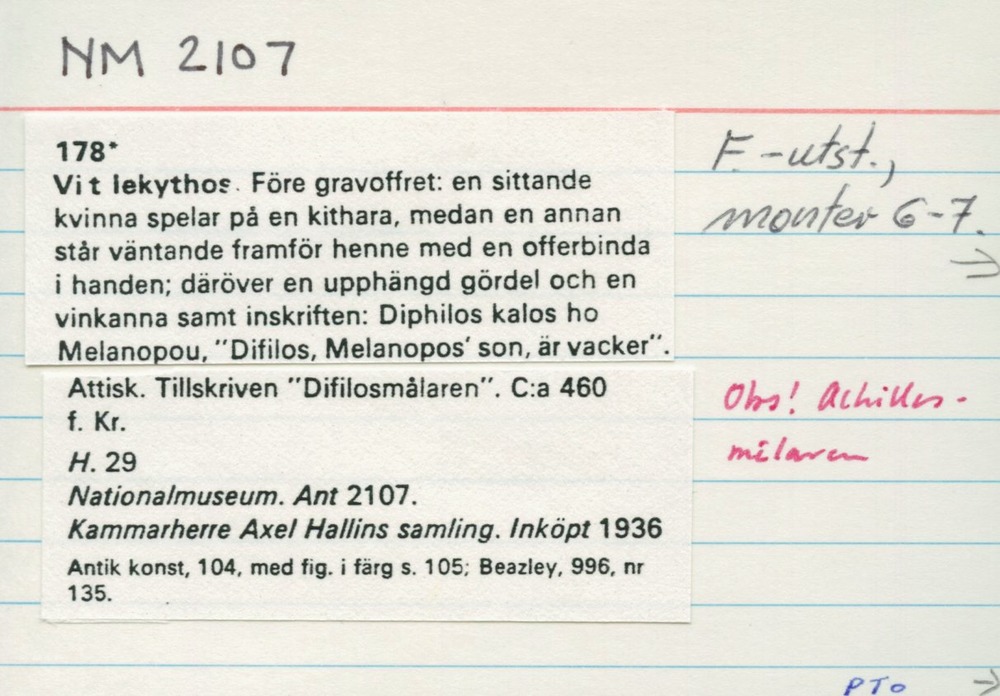 NM 2107
178*
Vit lekythos. Före gravoffret: en sittande
kvinna spelar på en kithara, medan en annan
står väntande framför henne med en offerbinda
i handen; däröver en upphängd gördel och en
vinkanna samt inskriften: Diphilos kalos ho
Melanopou, "Difilos, Melanopos' son, är vacker".
Attisk. Tillskriven "Difilosmålaren". C:a 460
f. Kr.
H. 29
Nationalmuseum. Ant 2107.
Kammarherre Axel Hallins samling. Inköpt 1936
Antik konst, 104, med fig. i färg s. 105; Beazley, 996, nr
135.
F.-utst.,
monter 6-7.
→
Obs! Achilles-
målaren
PTO →